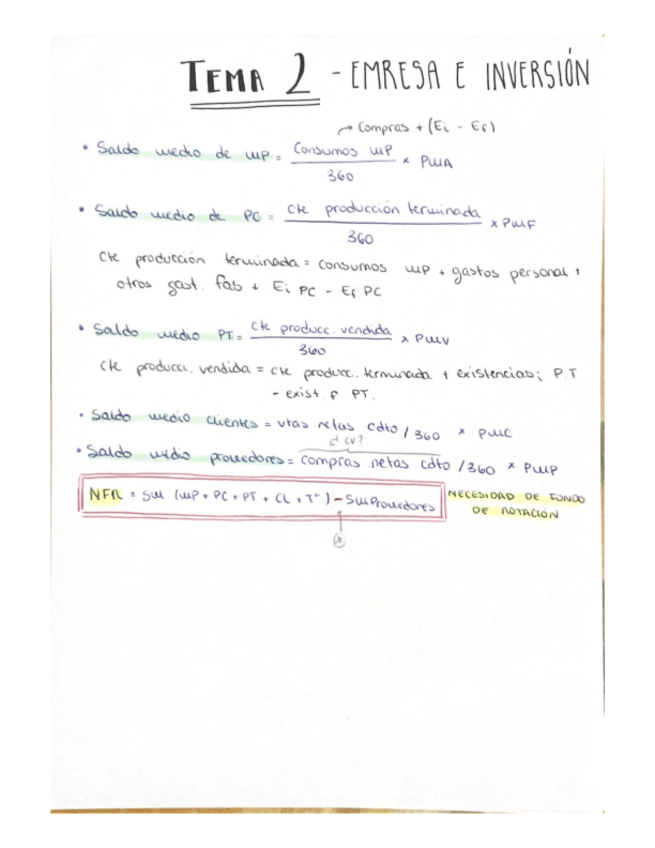 TEMA 2 - EMRESA E INVERSIÓN
→ Compras + (Ei - Ef)
• Saldo medio de MP = Consumos MP / 360 × PMA
• Saldo medio de PC = Cte producción terminada / 360 × PMF
Cte producción terminada = consumos MP + gastos personal +
otros gast. fab + Ei PC - Ef PC
• Saldo medio PT = Cte producc. vendida / 360 × PMV
Cte producci. vendida = cte producc. terminada + existencias i P.T
- exist. f PT.
• Saldo medio clientes = vtas netas cdto / 360 × PMC
d cv?
• Saldo medio proveedores = compras netas cdto / 360 × PMP
NFR = SM (MP + PC + PT + CL + Tª) - SM Proveedores
NECESIDAD DE FONDO
DE ROTACIÓN
*